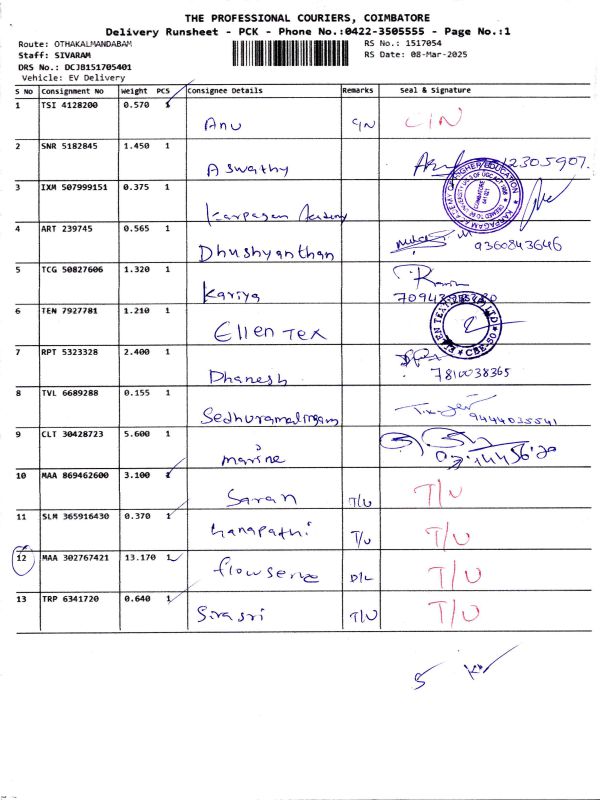 THE PROFESSIONAL COURIERS, COIMBATORE
Delivery Runsheet - PCK - Phone No.:0422-3505555 - Page No.:1
Route: OTHAKALMANDABAM
RS No.: 1517054
Staff: SIVARAM
RS Date: 08-Mar-2025
DRS No.: DCJB151705401
Vehicle: EV Delivery
S No Consignment No Weight PCS Consignee Details Remarks Seal & Signature
1 TSI 4128200 0.570 1 Anu C/N C/N
2 SNR 5182845 1.450 1 Aswathy
3 IXM 507999151 0.375 1 Karpagam Academy
4 ART 239745 0.565 1 Dhushyanthan 9360843646
5 TCG 50827606 1.320 1 Kariya
6 TEN 7927781 1.210 1 Ellen Tex
7 RPT 5323328 2.400 1 Dhanesh 7810038365
8 TVL 6689288 0.155 1 Sedhuramalingam 9444035541
9 CLT 30428723 5.600 1 marine
10 MAA 869462600 3.100 1 Saran T/U T/U
11 SLM 365916430 0.370 1 Ganapathi T/U T/U
12 MAA 302767421 13.170 1 flowserve D/L T/U
13 TRP 6341720 0.640 1 Sivasri T/U T/U
5